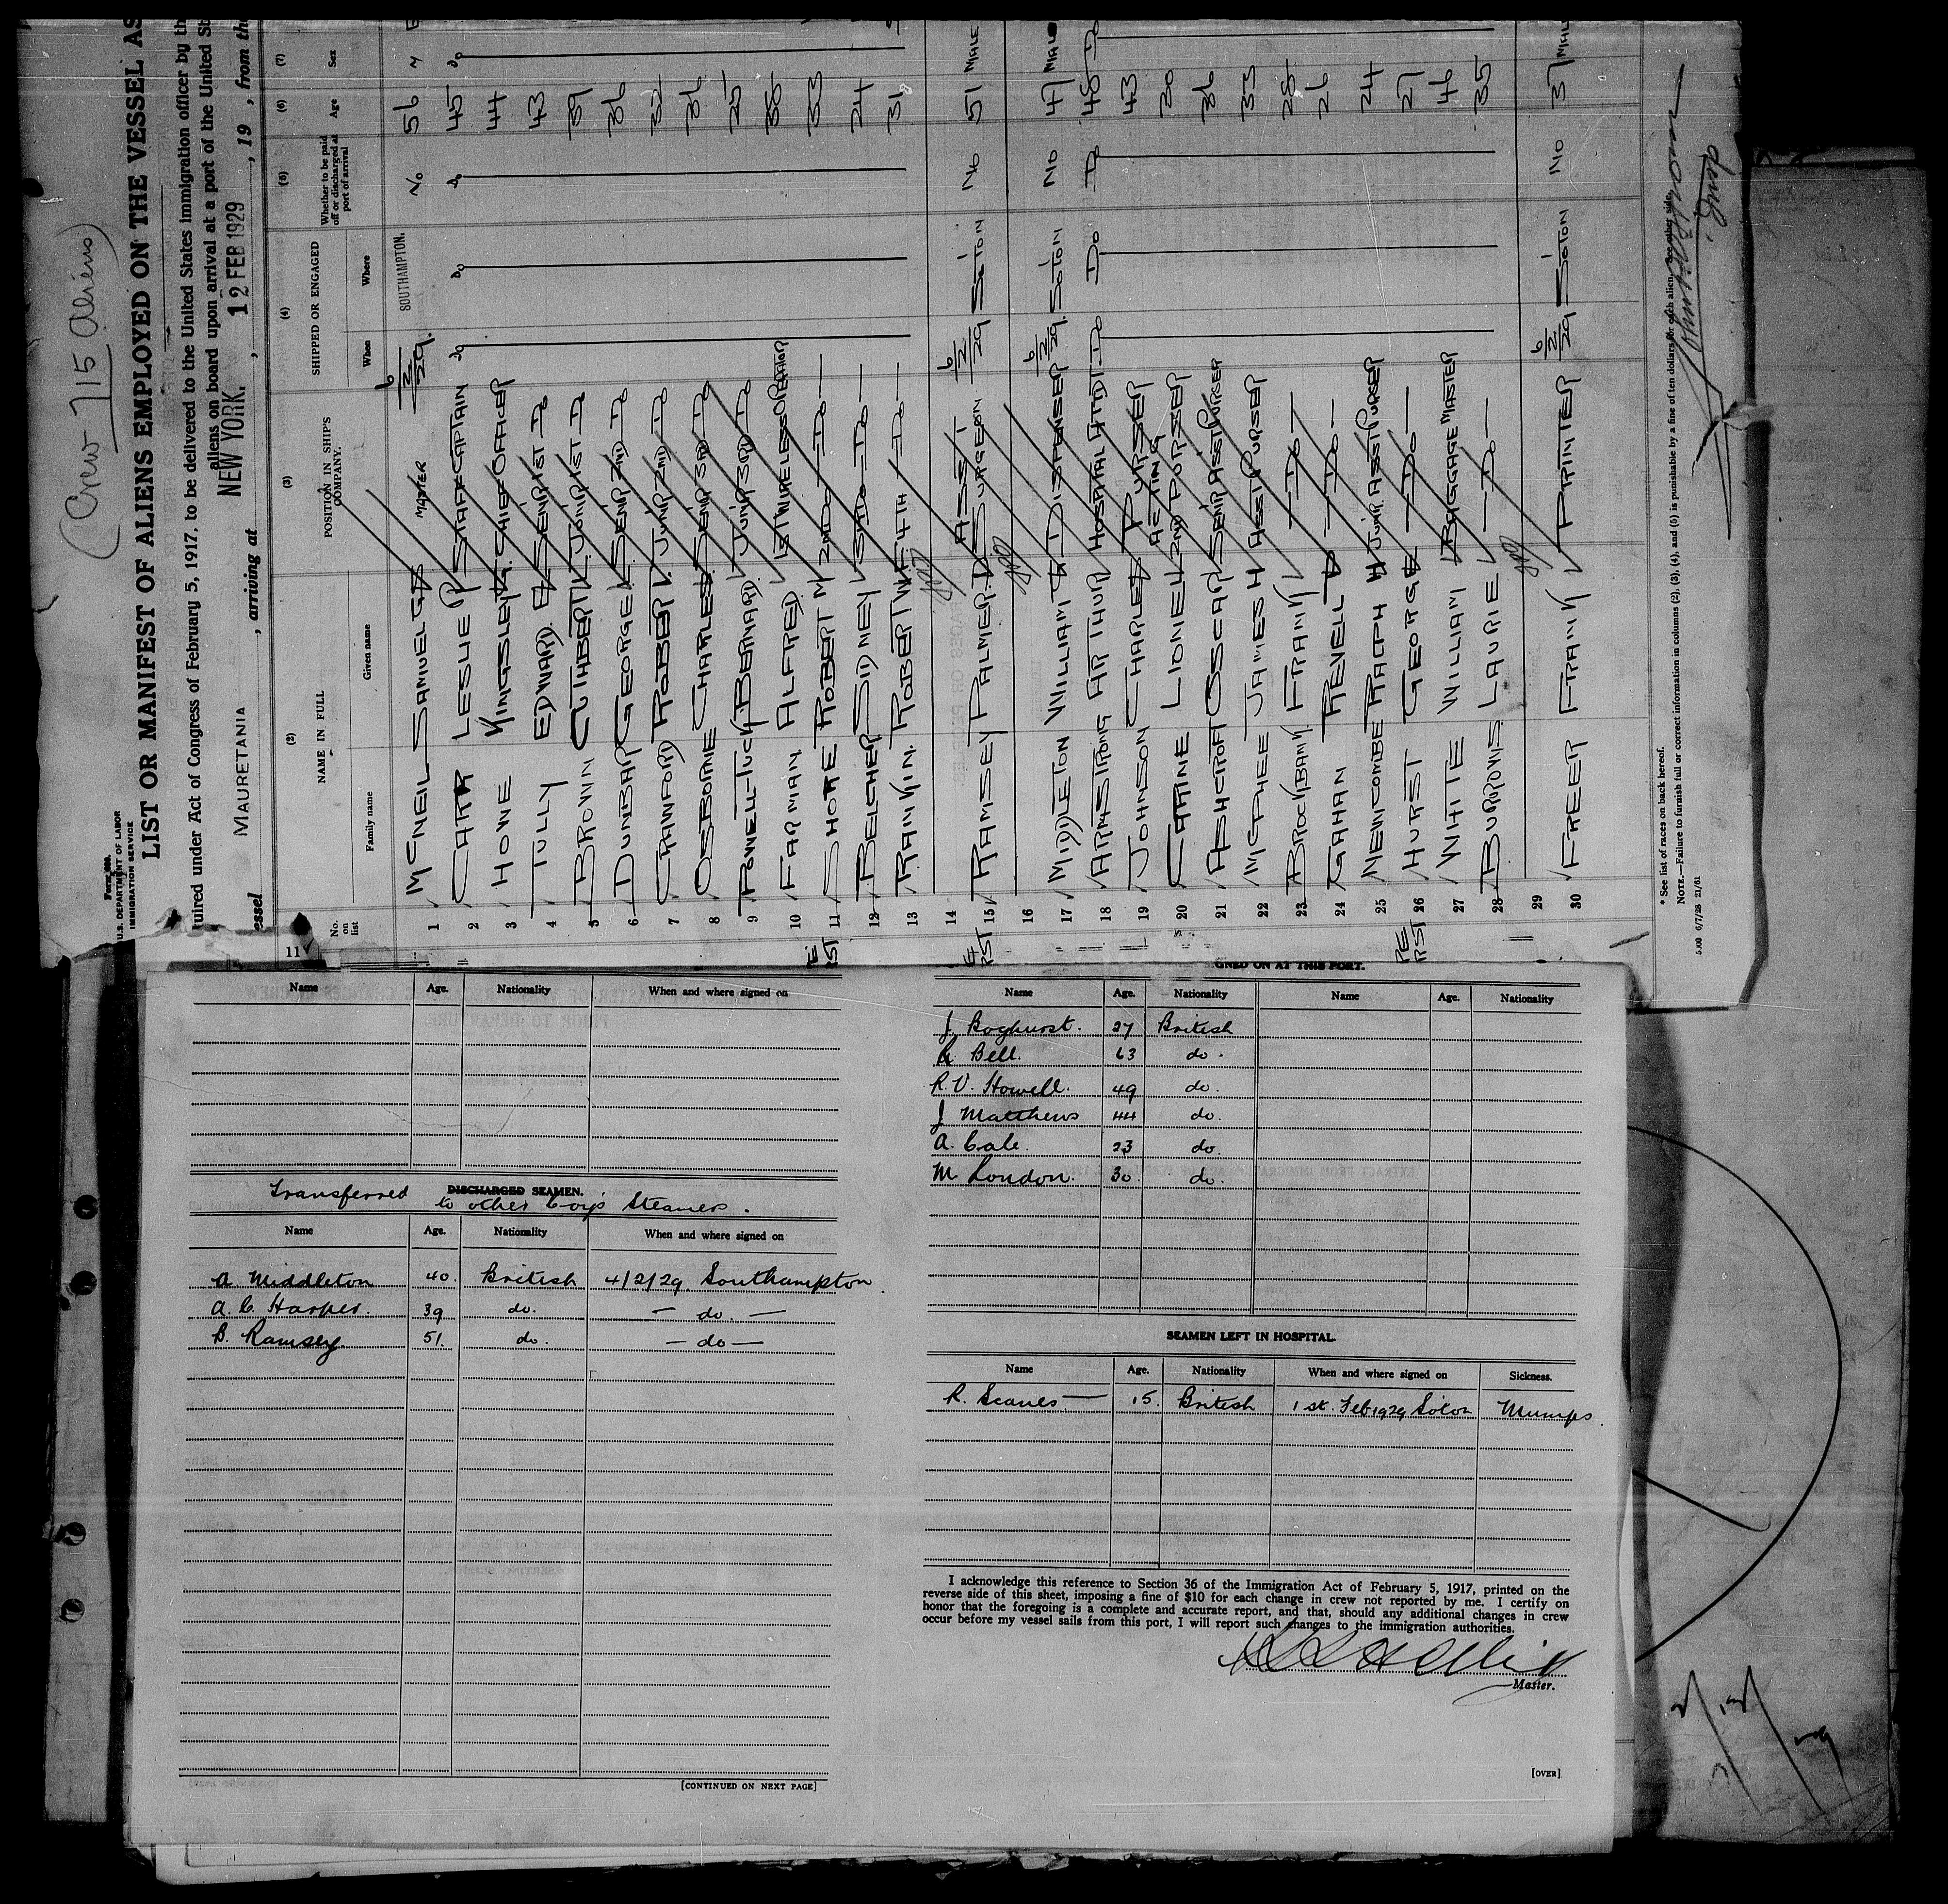 (Crew 715 Aliens)
U.S. DEPARTMENT OF LABOR
IMMIGRATION SERVICE
LIST OR MANIFEST OF ALIENS EMPLOYED ON THE VESSEL AS
quired under Act of Congress of February 5, 1917, to be delivered to the United States immigration officer by th
aliens on board upon arrival at a port of the United St
essel MAURETANIA , arriving at NEW YORK. , 12 FEB 1929 , 19 , from th
(2) (3) (4) (5) (6) (7)
No. on list NAME IN FULL POSITION IN SHIP'S COMPANY. SHIPPED OR ENGAGED Whether to be paid off or discharged at port of arrival Age Sex
Family name Given name When Where
1 McNEIL SAMUEL G S MASTER 6/2/29. SOUTHAMPTON. No 56 M
2 CARR LESLIE P STAFF CAPTAIN do do do 45 do
3 HOWE KINGSLEY G. CHIEF OFFICER 44
4 TULLY EDWARD. SENR 1ST DO 43
5 BROWN CUTHBERT K. JUNR 1ST DO 39
6 DUNBAR GEORGE SENR 2ND DO 36
7 CRAWFORD ROBERT JUNR 2ND DO 32
8 OSBORNE CHARLES SENR 3RD DO 36
9 POWNELL-TUCK BERNARD JUNR 3RD DO 25
10 FARMAN ALFRED 1ST WIRELESS OPERATOR 38
11 SHORE ROBERT M 2ND DO — DO — 33
12 BELCHER SIDNEY 3RD DO — DO — 24
13 RANKIN. ROBERT 4TH — DO — 31
14
15 RAMSEY PALMER. D ASST SURGEON 6/2/29 SOTON NO 51 MALE
16
17 MIDDLETON WILLIAM DISPENSER 6/2/29. SOTON NO 47 MALE
18 ARMSTRONG ARTHUR HOSPITAL ATTDT DO DO DO 48 DO
19 JOHNSON CHARLES PURSER 43
20 CARINE LIONEL ACTING 2ND PURSER 30
21 ASHCROFT OSCAR SENR ASST PURSER 36
22 McPHEE JAMES H ASST PURSER 33
23 BROCKBANK. FRANK — DO — 28
24 GAHAN REVELL — DO — 26
25 NEWCOMBE RALPH H JUNR. ASST PURSER 24
26 HURST GEORGE — DO — 27
27 WHITE WILLIAM BAGGAGE MASTER 46
28 BURROWS LAURIE — DO — 35
29
30 FREER FRANK PRINTER 6/2/29 SOTON NO 37 MALE
* See list of races on back hereof.
NOTE.—Failure to furnish full or correct information in columns (2), (3), (4), and (5) is punishable by a fine of ten dollars for each alien. See other side.
11
Name Age. Nationality When and where signed on
Transferred DISCHARGED SEAMEN.
to other Coys Steamers.
Name Age. Nationality When and where signed on
A. Middleton 40. British 4/2/29. Southampton
A. C. Harper. 39 do. — do. —
B. Ramsey. 51. do. — do —
[CONTINUED ON NEXT PAGE]
GNED ON AT THIS PORT.
Name Age. Nationality Name Age. Nationality
J Boghurst. 27 British
Bell. 63 do.
R.V. Howell. 49 do.
J Matthews 44 do.
A. Cale. 23 do.
M London. 30. do.
SEAMEN LEFT IN HOSPITAL.
Name Age. Nationality When and where signed on Sickness.
R. Scanes — 15. British 1st. Feb 1929 Soton Mumps.
I acknowledge this reference to Section 36 of the Immigration Act of February 5, 1917, printed on the
reverse side of this sheet, imposing a fine of $10 for each change in crew not reported by me. I certify on
honor that the foregoing is a complete and accurate report, and that, should any additional changes in crew
occur before my vessel sails from this port, I will report such changes to the immigration authorities.
Master.
[OVER]